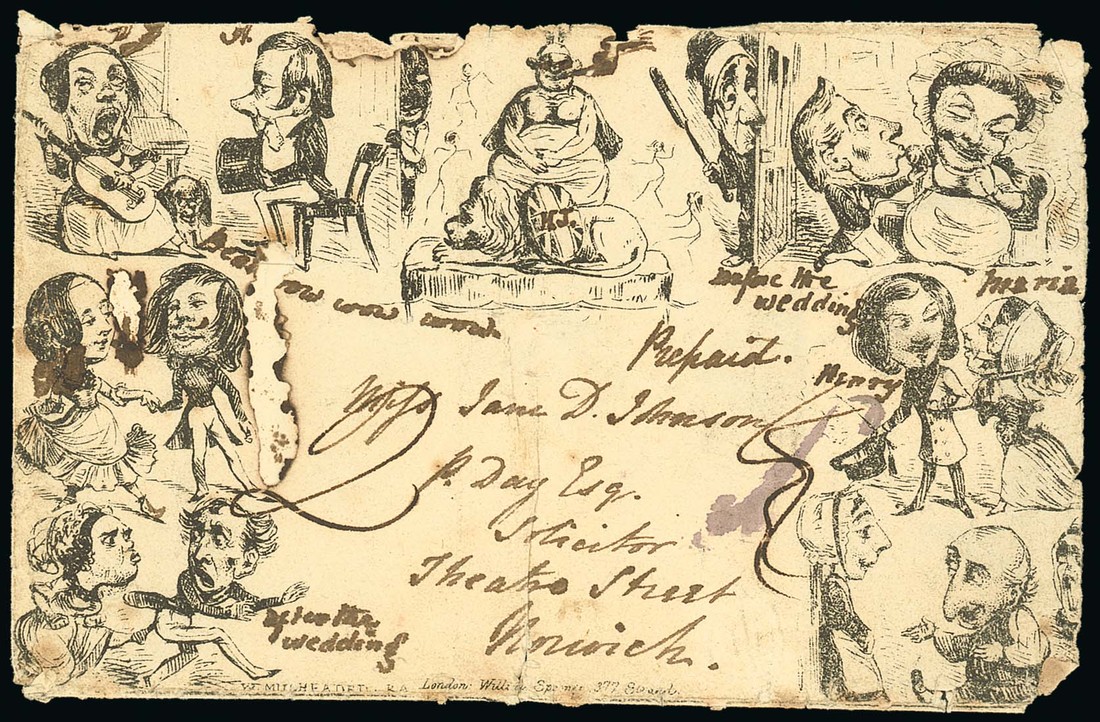 H.
H.J.
before the
wedding
Maria
Prepaid.
Henry
Miss Jane D. Johnson
P. Day Esq.
Solicitor
Theatre Street
Norwich.
after the
wedding
London: William Spooner 377 Strand.